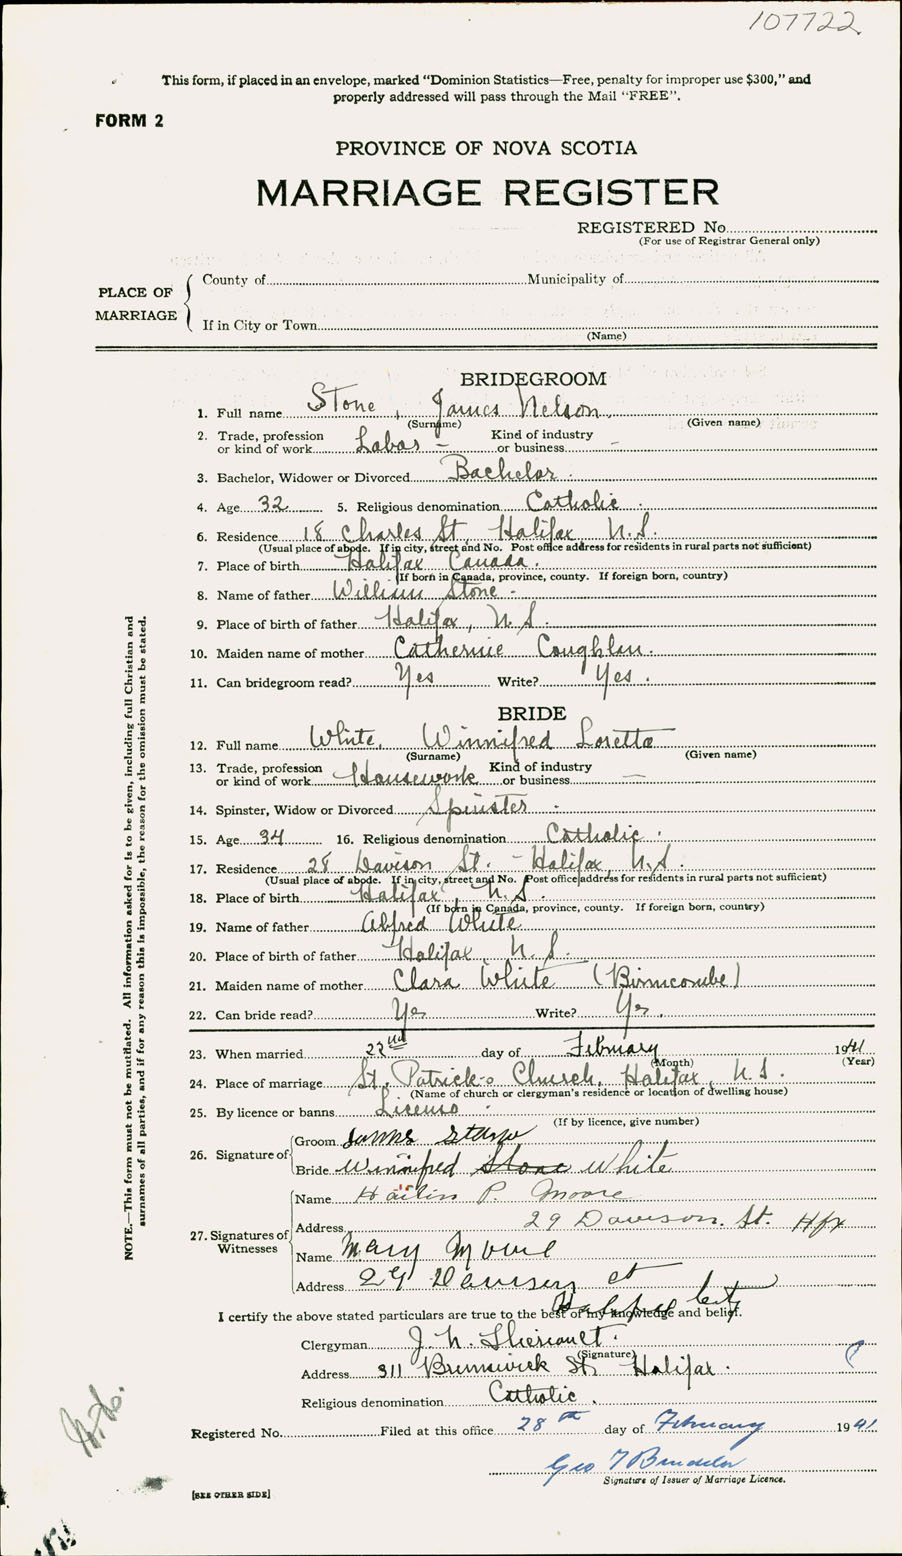 107722
This form, if placed in an envelope, marked "Dominion Statistics—Free, penalty for improper use $300," and
properly addressed will pass through the Mail "FREE".
FORM 2
PROVINCE OF NOVA SCOTIA
MARRIAGE REGISTER
REGISTERED No.
(For use of Registrar General only)
PLACE OF MARRIAGE
County of Municipality of
If in City or Town
(Name)
BRIDEGROOM
1. Full name Stone, James Nelson
(Surname) (Given name)
2. Trade, profession or kind of work Labor – Kind of industry or business –
3. Bachelor, Widower or Divorced Bachelor.
4. Age 32 5. Religious denomination Catholic.
6. Residence 18 Charles St. Halifax N.S.
(Usual place of abode. If in city, street and No. Post office address for residents in rural parts not sufficient)
7. Place of birth Halifax Canada.
(If born in Canada, province, county. If foreign born, country)
8. Name of father William Stone -
9. Place of birth of father Halifax, N.S.
10. Maiden name of mother Catherine Coughlan.
11. Can bridegroom read? Yes Write? Yes.
BRIDE
12. Full name White, Winnifred Loretta
(Surname) (Given name)
13. Trade, profession or kind of work Housework Kind of industry or business —
14. Spinster, Widow or Divorced Spinster -
15. Age 34 16. Religious denomination Catholic.
17. Residence 28 Davison St. - Halifax, N.S.
(Usual place of abode. If in city, street and No. Post office address for residents in rural parts not sufficient)
18. Place of birth Halifax N.S.
(If born in Canada, province, county. If foreign born, country)
19. Name of father Alfred White
20. Place of birth of father Halifax N.S.
21. Maiden name of mother Clara White
22. Can bride read? Yes Write? Yes.
23. When married 22nd day of February 1941
(Month) (Year)
24. Place of marriage St. Patrick's Church, Halifax, N.S.
(Name of church or clergyman's residence or location of dwelling house)
25. By licence or banns License.
(If by licence, give number)
26. Signature of
Groom James Stone
Bride Winnifred Stone White
27. Signatures of Witnesses
Name P. Moore
Address 29 Davison. St. Hfx
Name Mary Moore
Address 29 Davison st
Halifax City
I certify the above stated particulars are true to the best of my knowledge and belief.
Clergyman J. N. Theriault.
(Signature)
Address 311 Brunswick St, Halifax.
Religious denomination Catholic.
Registered No. Filed at this office 28th day of February 1941
Geo T
Signature of Issuer of Marriage Licence.
[SEE OTHER SIDE]
NOTE.—This form must not be mutilated. All information asked for is to be given, including full Christian and
surnames of all parties, and if for any reason this is impossible, the reason for the omission must be stated.